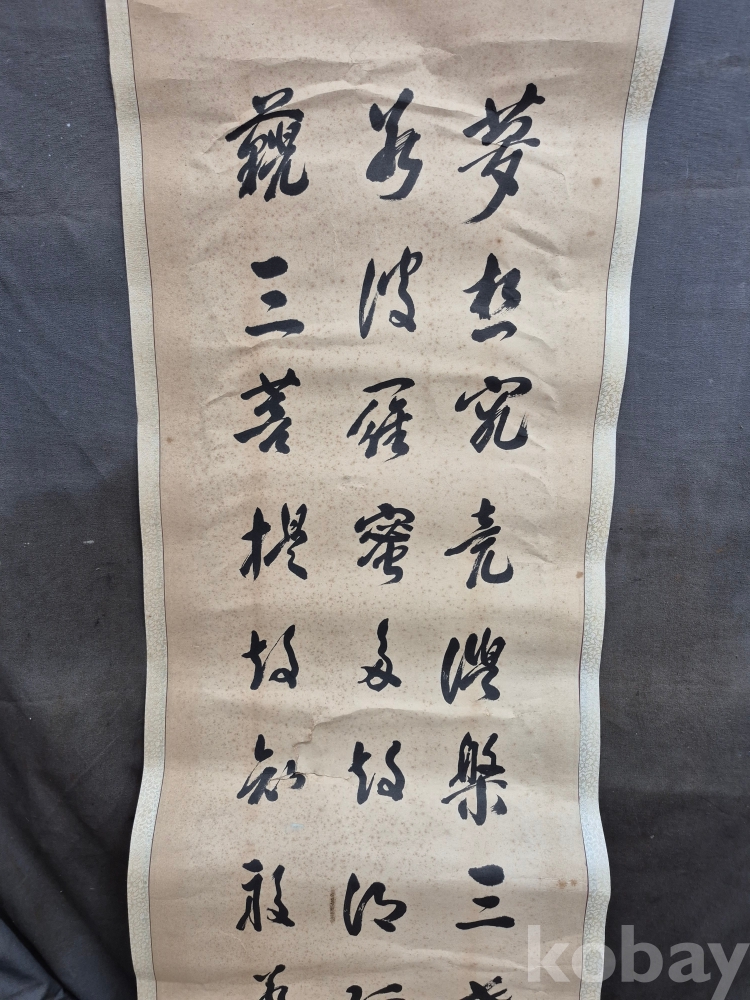 夢想究竟涅槃三世
若波羅蜜多故得阿
藐三菩提故知般若
kobay